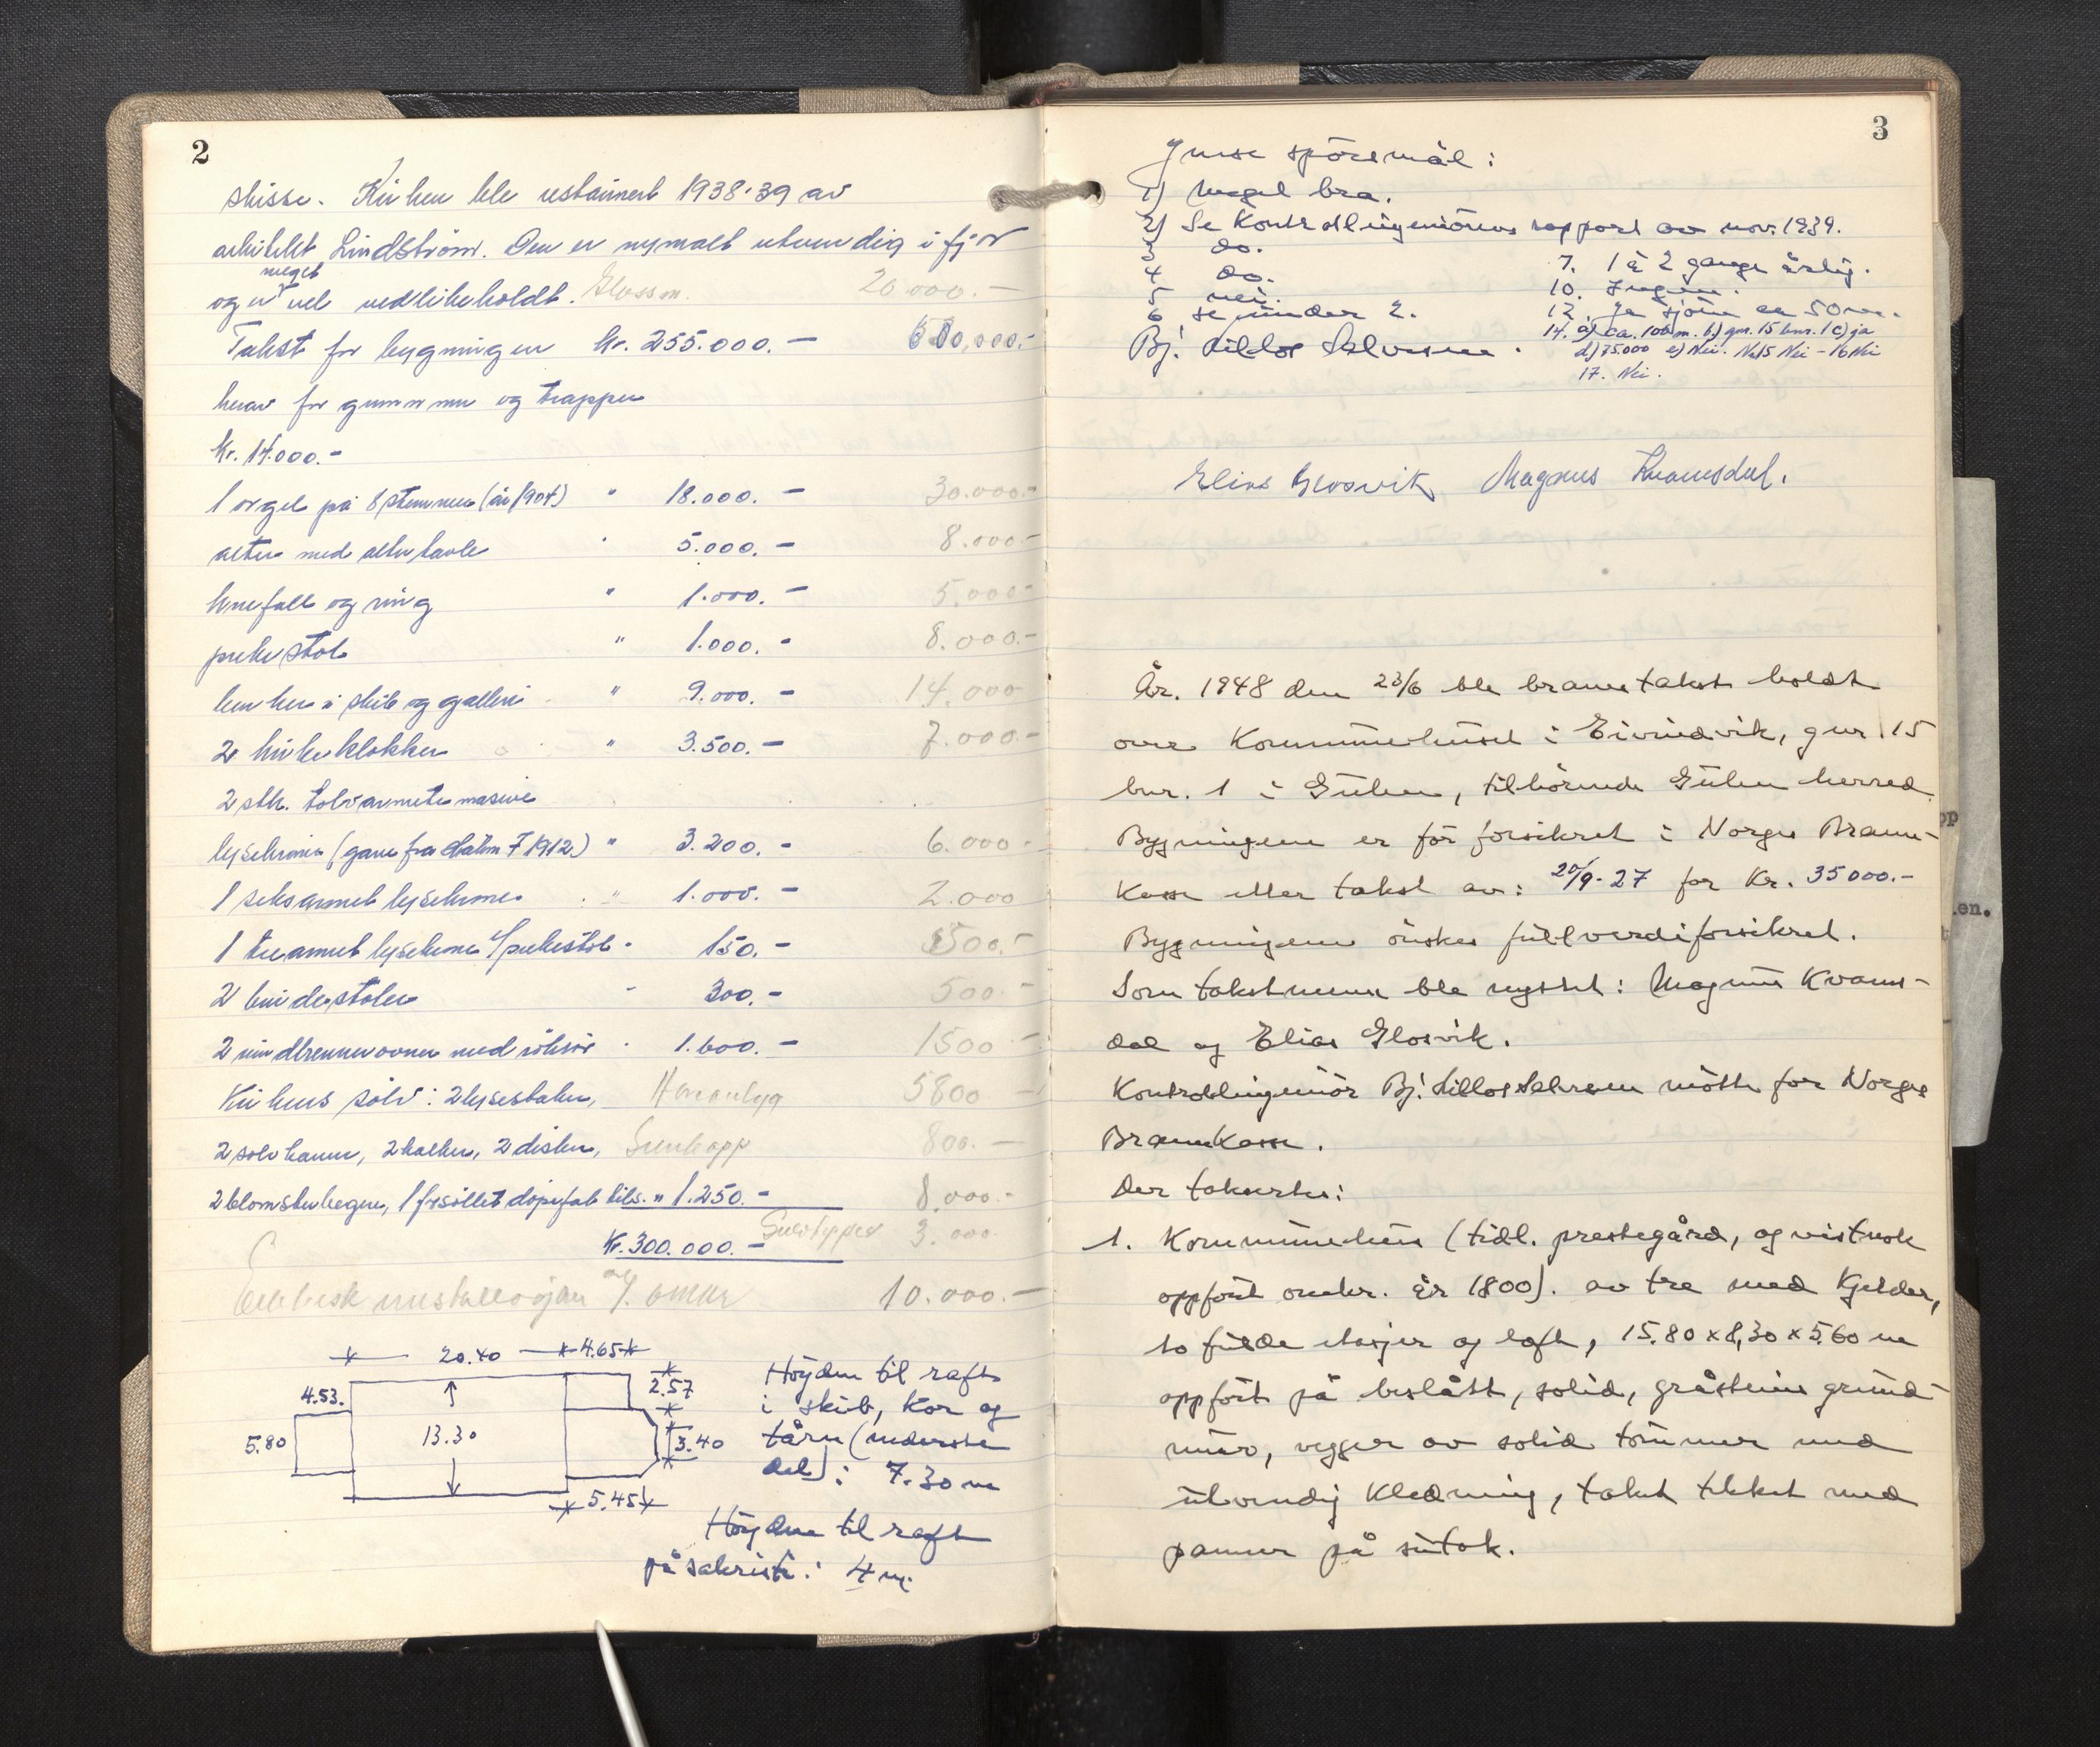 2
skisse. Kirken ble restaurert 1938-39 av
arkitekt Lindström. Den er nymalt utvendig i fjor
meget
og er vel vedlikeholdt. 20.000.-
Takst for bygningen kr. 255.000.- 500.000.-
herav for grunnmur og trapper
kr. 14.000.-
1 orgel på 8 stemmer (år 1904) " 18.000.- 30.000.-
alter med altertavle " 5.000.- 8.000.-
knefall og ring " 1.000.- 5.000.-
prekestol " 1.000.- 8.000.-
benker i skib og galleri " 9.000.- 14.000
2 kirkeklokker " 3.500.- 7.000.-
2 stk. tolvarmete masive
lysekroner (gave fra 1912) " 3.200.- 6.000.-
1 seksarmet lysekrone " 1.000.- 2.000
1 trearmet lysekrone i/prekestol " 150.- 500.-
2 brudestoler " 300.- 500.-
2 rundbrennerovner med rökrör " 1.600.- 1500.-
Kirkens sölv: 2 lysestaker, 5800
2 sölvkanner, 2 kalker, 2 disker, 800.-
2 blomsterbegre, 1 forsöllet döpefat tils. " 1.250.- 8.000.-
Kr. 300.000.- Gulvtepper 3.000.
Elektrisk installasjon 10.000.-
20.40 4.65
4.53. 2.57
5.80 13.30 3.40
5.45
Höyden til raft
i skib, kor og
tårn (nederste
del): 7.30 m
Höyden til raft
på sakristi: 4 m.
3
Ymse spörsmål:
1) Meget bra.
2) Se Kontrollingeniörens rapport av nov. 1939.
3 do.
4 do.
5 nei.
6 se under 2.
7. 1 à 2 gange årlig.
10. Ingen.
12. Ja sjöen ca 50 m.
14. a) ca. 100 m. b) gnr. 15 bnr. 1 c) ja
d) 75.000 e) Nei. N. 15 Nei - 16 Nei
17. Nei.
Bj. Lillos Salvesen.
Elias Glosvik Magnus Kvamsdal.
År. 1948 den 23/6 ble branntakst holdt
over Kommunehuset i Eivindvik, gnr. 15
bnr. 1 i Gulen, tilhörende Gulen herred.
Bygningene er för forsikret i Norges Brann-
kasse etter takst av: 20/9-27 for Kr. 35000.-
Bygningene önskes fullverdiforsikret.
Som takstmenn ble nyttet: Magnus Kvams-
dal og Elias Glosvik.
Kontrollingeniör Bj. Lillos Salvesen mötte for Norges
Brannkasse.
Der taksertes:
1. Kommunehus (tidl. prestegård, og vistnok
oppfört omkr. år 1800). av tre med Kjelder,
to fulde etasjer og loft, 15.80 x 8,30 x 5.60 m
oppfört på beslått, solid, gråsteins grund-
mur, vegger av solid tömmer med
utvendig Kledning, taket tekket med
panner på sutak.